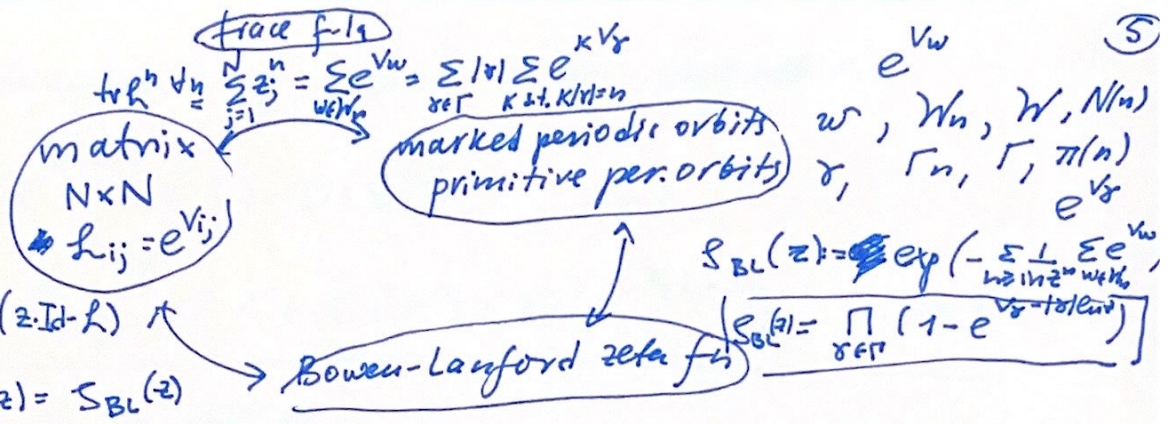 trace f-la
⑤
tr ℒⁿ ∀n ∑_{j=1}^{N} z_jⁿ = ∑_{w∈𝒲_n} e^{V_w} = ∑_{γ∈Γ} |γ| ∑_{κ s.t. κ|γ|=n} e^{κV_γ}
e^{V_w}
matrix
N×N
ℒ_{ij} = e^{V_{ij}}
marked periodic orbits
primitive per. orbits
w, 𝒲_n, 𝒲, N(n)
γ, Γ_n, Γ, π(n)
e^{V_γ}
ζ_{BL}(z) := exp(- ∑_{n≥1} 1/(n zⁿ) ∑_{w∈𝒲_n} e^{V_w},
ζ_{BL}(z) = ∏_{γ∈Γ} (1 - e^{V_γ - |γ| ln z})
(z·Id-ℒ)
Bowen-Lanford zeta fn
z) = ζ_{BL}(z)